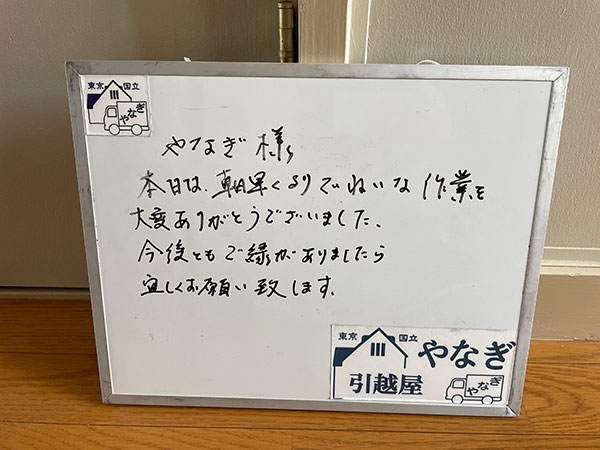 東京 国立
やなぎ
やなぎ様
本日は、朝早くよりていねいな作業を
大変ありがとうございました、
今後ともご縁がありましたら
宜しくお願い致します。
東京 国立
やなぎ
引越屋
やなぎ